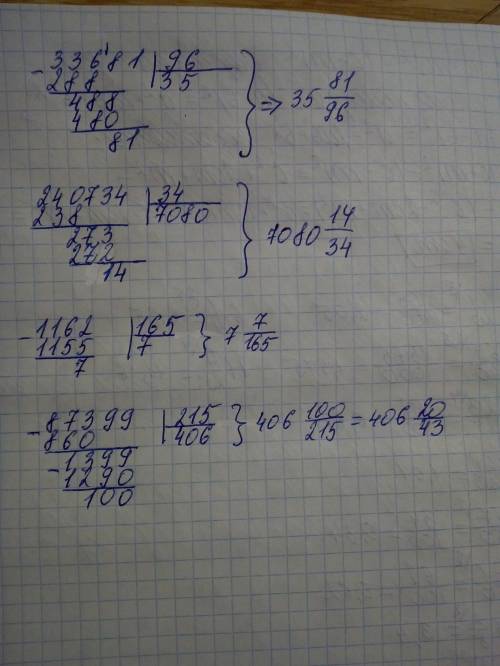 - 33681 | 96
288 | 35
488
480
81
} ⇒ 35 81/96
240734 | 34
238 | 7080
273
272
14
} 7080 14/34
- 1162 | 165
1155 | 7
7
} 7 7/165
- 87399 | 215
860 | 406
- 1399
1290
100
} 406 100/215 = 406 20/43